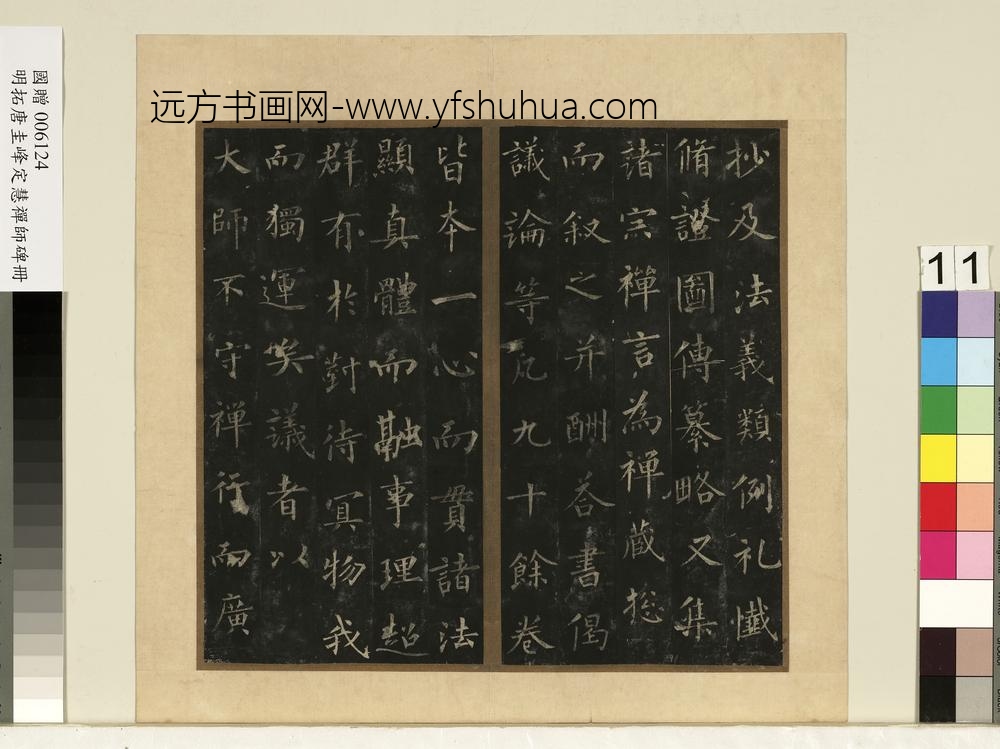 國贈 006124
明拓唐圭峰定慧禪師碑冊
远方书画网-www.yfshuhua.com
抄及法義類例礼懺
脩證圖傳纂略又集
諸宗禪言為禪藏揔
而叙之并酬荅書偈
議論等凡九十餘卷
皆本一心而貫諸法
顯真體而融事理超
群有於對待冥物我
而獨運矣議者以
大師不守禪行而廣
11